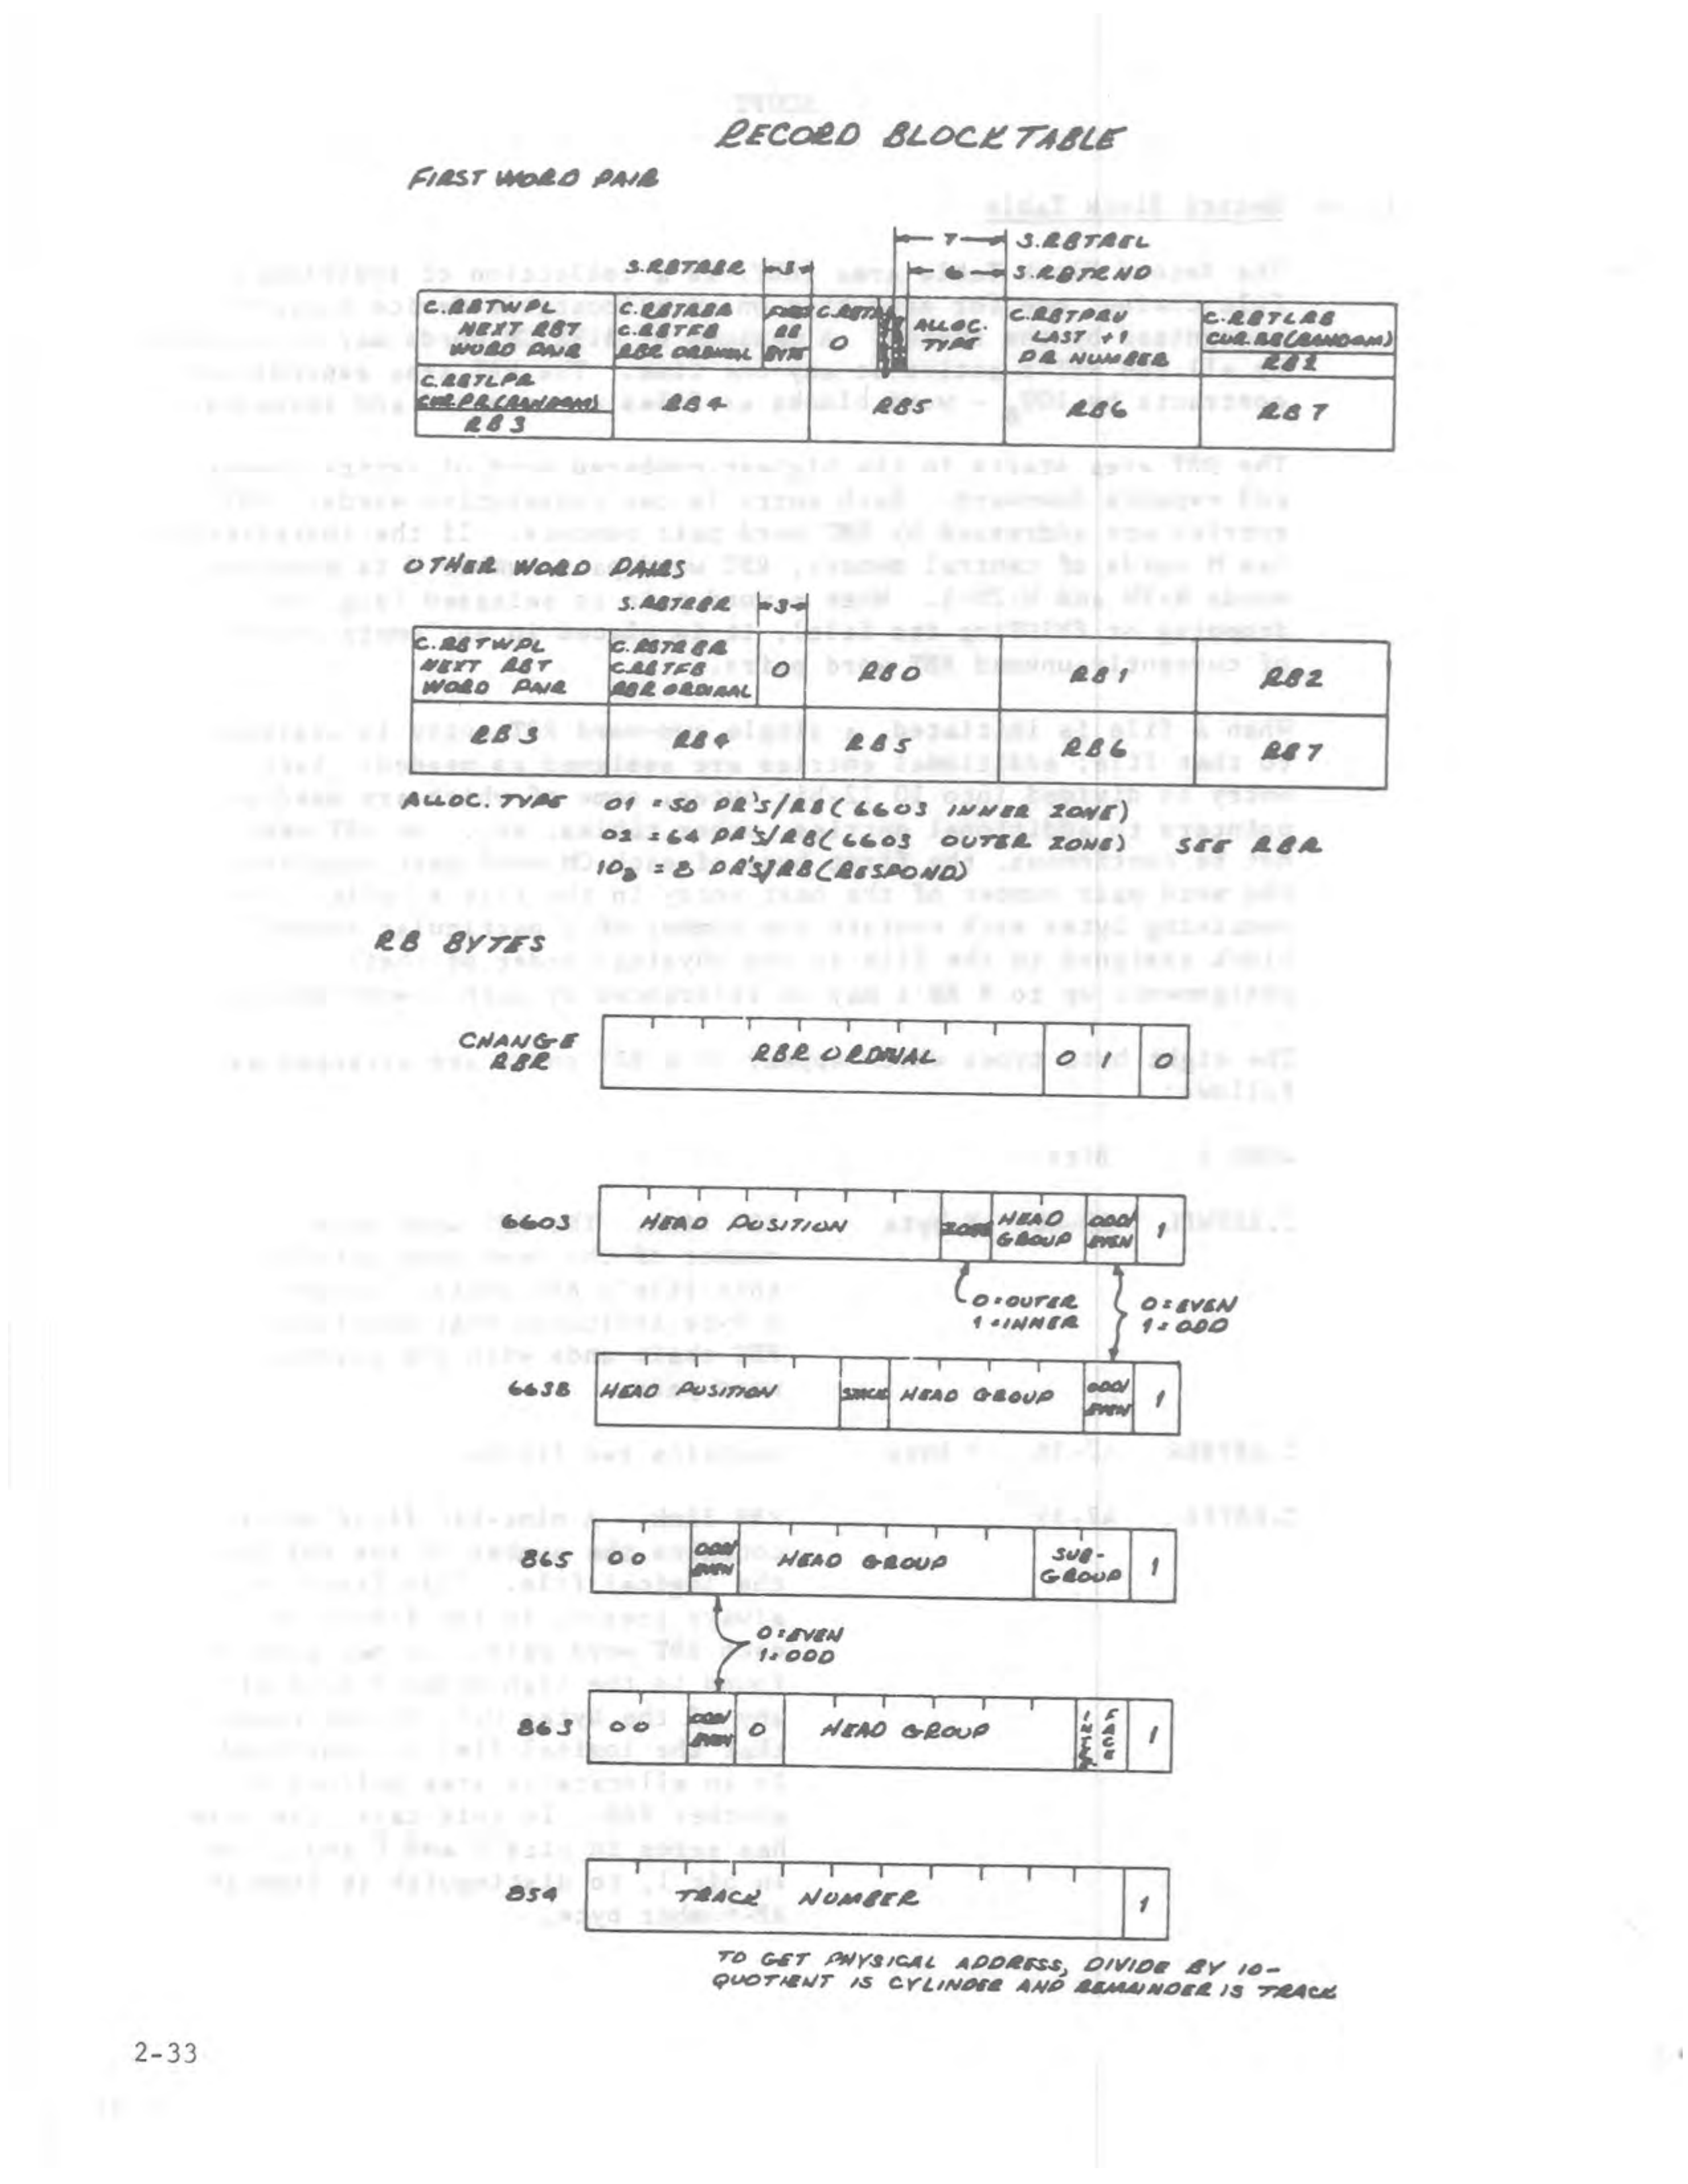 RECORD BLOCK TABLE
FIRST WORD PAIR
7 S.RBTREL
S.RBTRBR 3 6 S.RBTRND
C.RBTWPL
NEXT RBT
WORD PAIR
C.RBTRBR
C.RBTFB
RBR ORDINAL
FIRST
RB
BYTE
0
ALLOC.
TYPE
C.RBTPRU
LAST + 1
PR NUMBER
C.RBTLRB
CUR.RB(RANDOM)
RB2
C.RBTLPR
CUR PR(RANDOM)
RB3
RB4
RB5
RB6
RB7
OTHER WORD PAIRS
S.RBTRBR 3
C.RBTWPL
NEXT RBT
WORD PAIR
C.RBTRBR
C.RBTFB
RBR ORDINAL
0
RB0
RB1
RB2
RB3
RB4
RB5
RB6
RB7
ALLOC. TYPE 01 = 50 PR'S/RB (6603 INNER ZONE)
02 = 64 PR'S/RB (6603 OUTER ZONE) SEE RBR
10₈ = 8 PR'S/RB (RESPOND)
RB BYTES
CHANGE
RBR
RBR ORDINAL 0 1 0
6603 HEAD POSITION ZONE
HEAD
GROUP
ODD/
EVEN
1
0=OUTER
1=INNER
0=EVEN
1=ODD
6638 HEAD POSITION STACK HEAD GROUP
ODD/
EVEN
1
865 00
ODD/
EVEN
HEAD GROUP
SUB-
GROUP
1
0=EVEN
1=ODD
863 00
ODD/
EVEN
0 HEAD GROUP
FACE
1
854 TRACK NUMBER 1
TO GET PHYSICAL ADDRESS, DIVIDE BY 10-
QUOTIENT IS CYLINDER AND REMAINDER IS TRACK
2-33